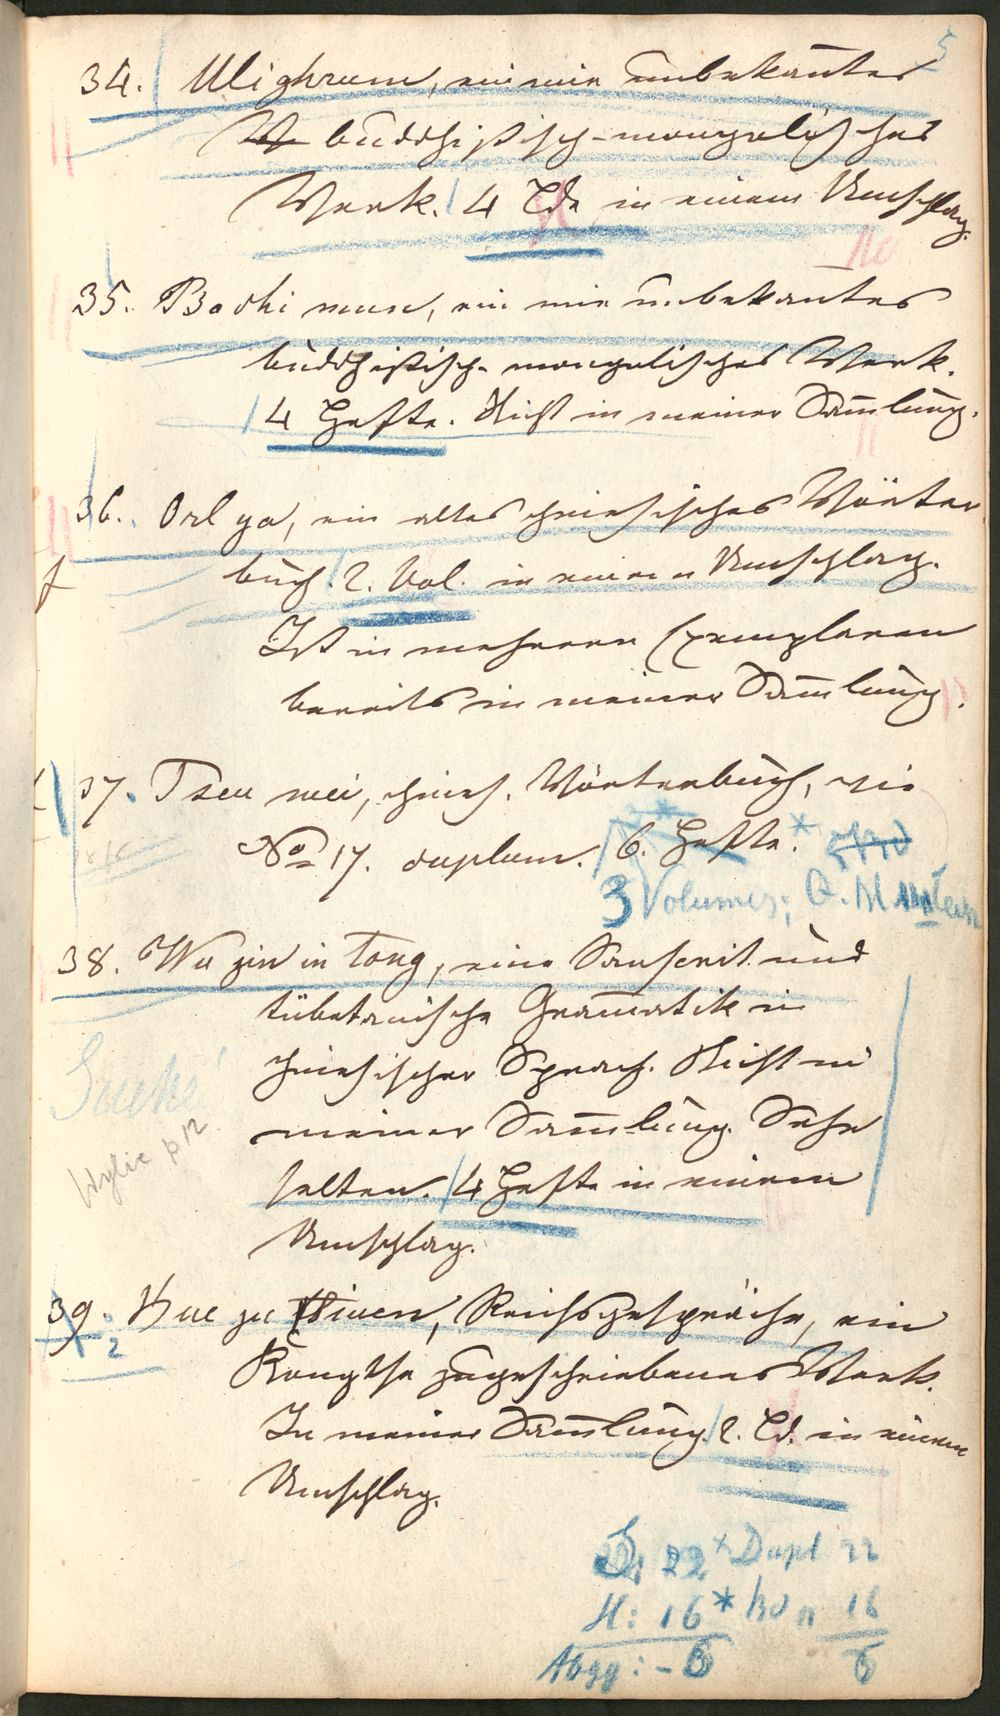 5
34. Ulighrum, ein mir unbekanntes
buddhistisch-mongolisches
Werk. 4 Bde in einem Umschlag.
35. Bodhi mun, ein mir unbekantes
buddhistisch-mongolisches Werk.
4 Hefte. Nicht in meiner Sam̄lung.
36. Orl ya, ein altes chinesisches Wörter
buch. 2. Vol. in einem Umschlag.
Ist in mehrern Exemplaren
bereits in meiner Sam̄lung.
37. Tseu wei, chines. Wörterbuch, wie
No 17. duplum. 6. Hefte.*
3 Volumes;
38. Wu zin in Tong, eine Sanscrit und
tübetanische Gram̄atik in
chinesischer Sprach. Nicht in
meiner Sam̄lung. Sehr
selten. 4 Hefte in einem
Umschlag.
Suche!
Wylie p 12
39. Kue yu, Reichsgespräche, ein
Kongtse zugeschriebenes Werk.
In meiner Sam̄lung. 2. Bd. in einem
Umschlag.
D: 22 * Dupl 22
H: 16 * 16
Abgg: - 6 6